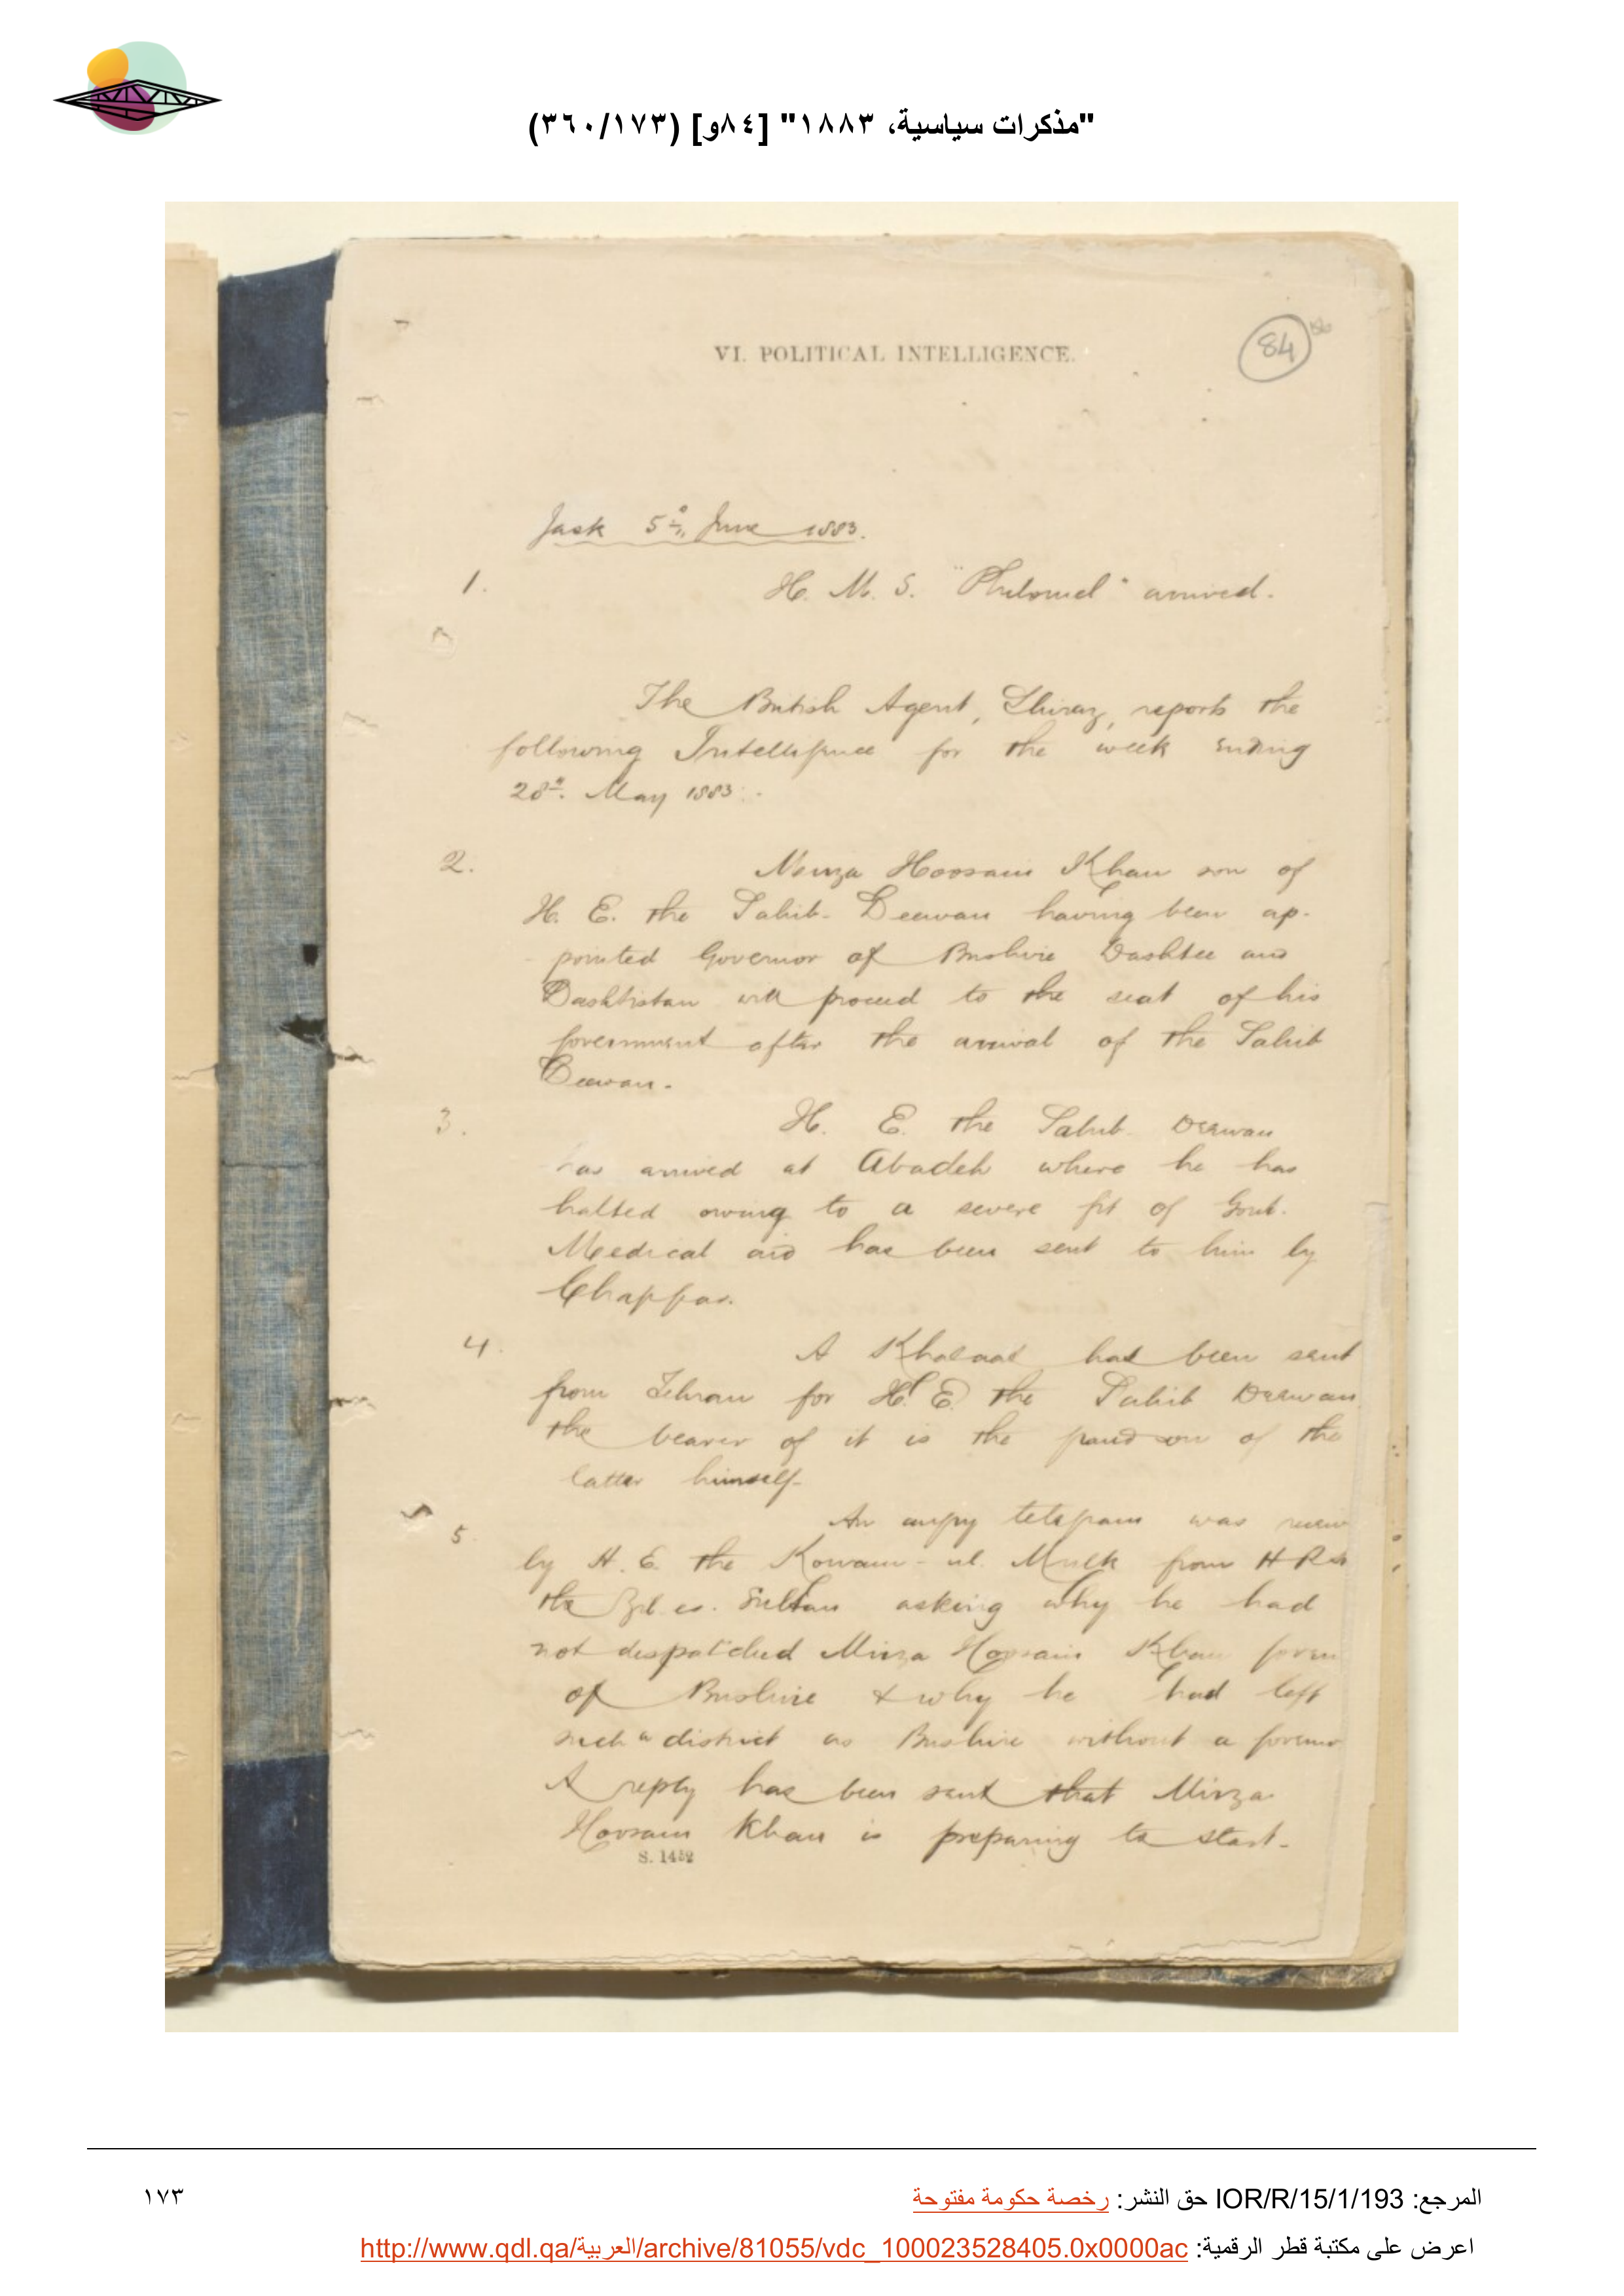 "مذكرات سياسية، ١٨٨٣" [٨٤و] (٣٦٠/١٧٣)
VI. POLITICAL INTELLIGENCE.
84
Jask 5th June 1883.
1. H. M. S. "Philomel" arrived.
The British Agent, Shiraz, reports the
following Intelligence for the week ending
28th. May 1883.
2. Mirza Hoosain Khan son of
H. E. the Sahib-Deewan having been ap-
pointed Governor of Bushire Dashtee and
Dashtistan will proceed to the seat of his
government after the arrival of the Sahib
Deewan.
3. H. E. the Sahib Deewan
has arrived at Abadeh where he has
halted owing to a severe fit of Gout.
Medical aid has been sent to him by
Chappar.
4. A Khalaat has been sent
from Tehran for H. E. the Sahib Deewan
the bearer of it is the grandson of the
latter himself.
5. An angry telegram was
by H. E. the Kowam-ul-Mulk from H R H
the Zil-es-Sultan asking why he had
not despatched Mirza Hoosain Khan
of Bushire & why he had left
such a district as Bushire without a
A reply has been sent that Mirza
Hoosain Khan is preparing to start.
S. 1452
المرجع: IOR/R/15/1/193 حق النشر: رخصة حكومة مفتوحة
١٧٣
اعرض على مكتبة قطر الرقمية: http://www.qdl.qa/العربية/archive/81055/vdc_100023528405.0x0000ac